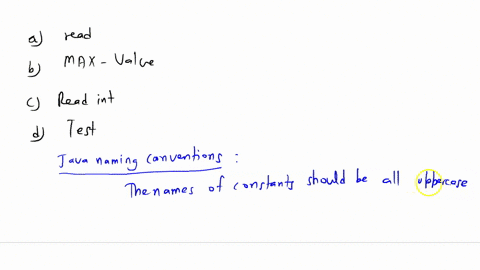 a) read
b) MAX - Value
c) Read int
d) Test
Java naming conventions :
The names of constants should be all uppercase